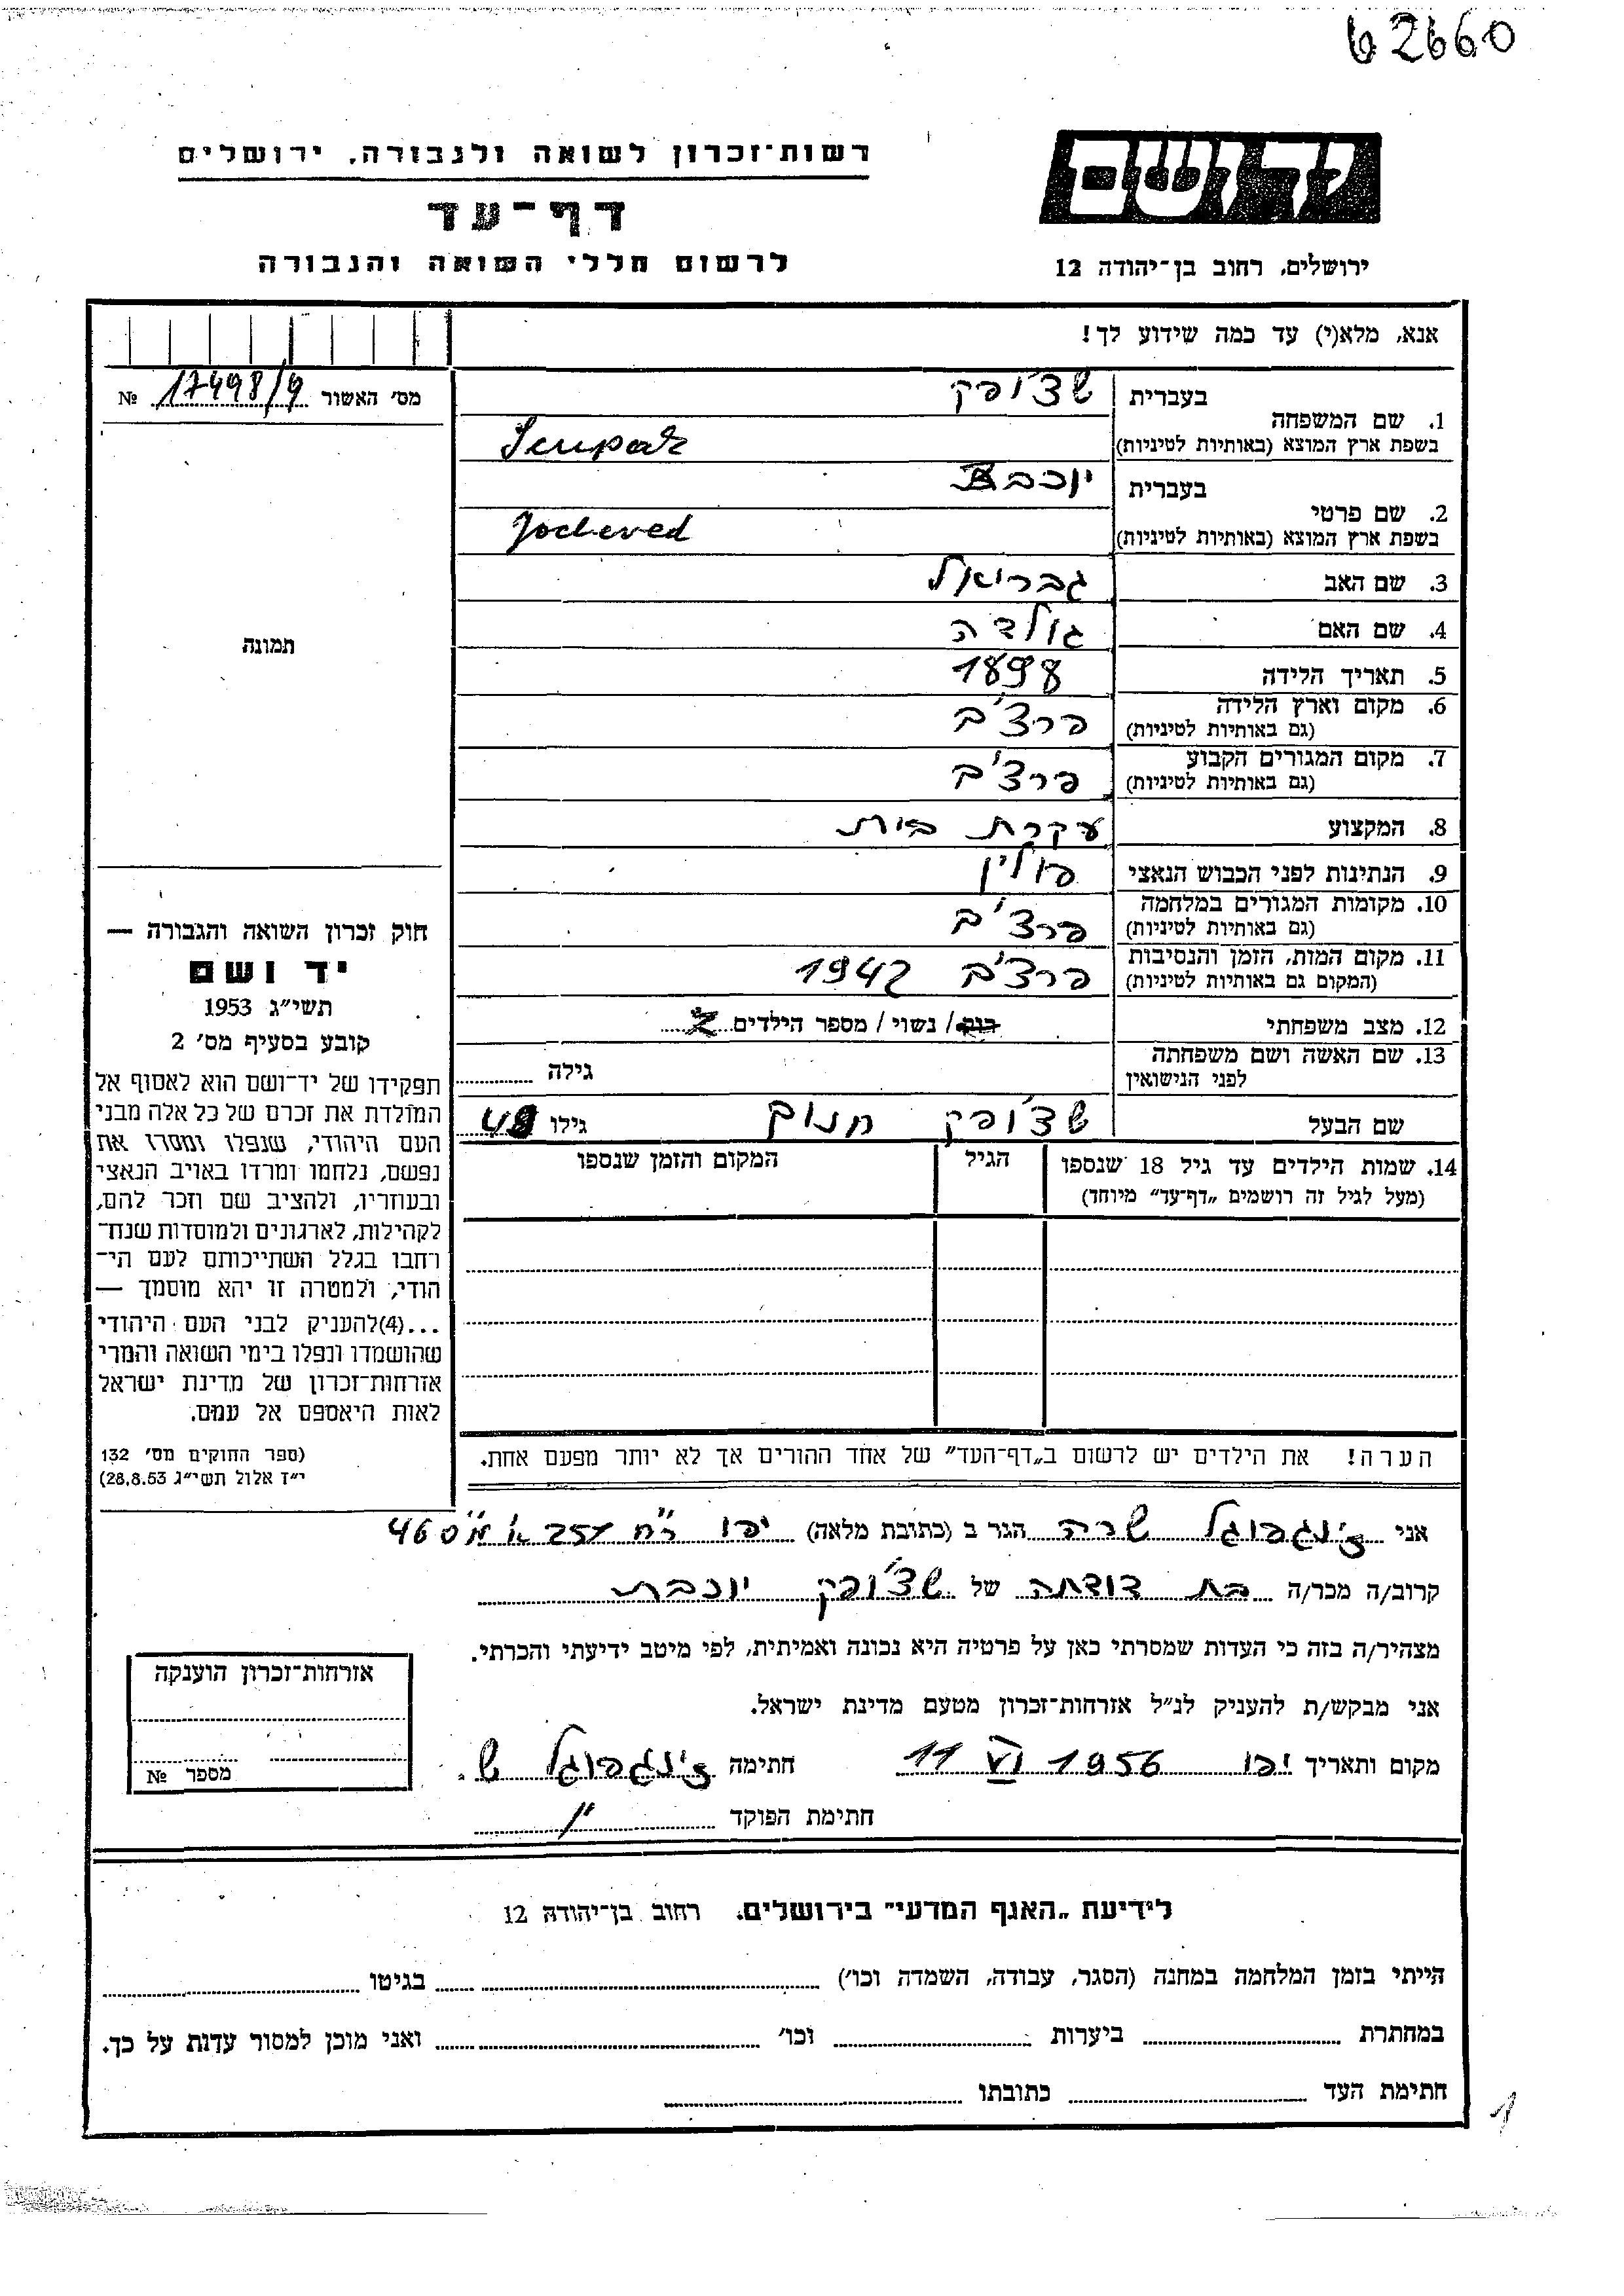 62660
רשות־זכרון לשואה ולגבורה, ירושלים
דף־עד
לרשום חללי השואה והגבורה
יד ושם
ירושלים, רחוב בן־יהודה 12
אנא, מלא(י) עד כמה שידוע לך!
מס׳ האשור 17498/9 №
1. שם המשפחה
בעברית שצ׳ופק
בשפת ארץ המוצא (באותיות לטיניות)
2. שם פרטי
בעברית יוכבת
בשפת ארץ המוצא (באותיות לטיניות) Jocheved
3. שם האב גבריאל
4. שם האם גולדה
5. תאריך הלידה 1898
6. מקום וארץ הלידה פרצ׳ב
(גם באותיות לטיניות)
7. מקום המגורים הקבוע פרצ׳ב
(גם באותיות לטיניות)
8. המקצוע עקרת בית
9. הנתינות לפני הכבוש הנאצי פולין
10. מקומות המגורים במלחמה פרצ׳ב
(גם באותיות לטיניות)
11. מקום המות, הזמן והנסיבות פרצ׳ב 1942
(המקום גם באותיות לטיניות)
12. מצב משפחתי רווק / נשוי / מספר הילדים 2
13. שם האשה ושם משפחתה
לפני הנישואין
גילה
שם הבעל שצ׳ופק חנום גילו 48
14. שמות הילדים עד גיל 18 שנספו
(מעל לגיל זה רושמים „דף־עד״ מיוחד)
הגיל
המקום והזמן שנספו
הערה! את הילדים יש לרשום ב„דף־העד״ של אחד ההורים אך לא יותר מפעם אחת.
תמונה
חוק זכרון השואה והגבורה —
יד ושם
תשי״ג 1953
קובע בסעיף מס׳ 2
תפקידו של יד־ושם הוא לאסוף אל
המולדת את זכרם של כל אלה מבני
העם היהודי, שנפלו ומסרו את
נפשם, נלחמו ומרדו באויב הנאצי
ובעוזריו, ולהציב שם וזכר להם,
לקהילות, לארגונים ולמוסדות שנח־
רחבו בגלל השתייכותם לעם הי־
הודי, ולמטרה זו יהא מוסמך —
...(4)להעניק לבני העם היהודי
שהושמדו ונפלו בימי השואה והמרי
אזרחות־זכרון של מדינת ישראל
לאות היאספם אל עמם.
(ספר החוקים מס׳ 132
י״ז אלול תשי״ג 28.8.53)
אני ז׳ונגפוגל שרה הגר ב (כתובת מלאה) יפו רח׳ 257 א׳ מ״ס 460
קרוב/ה מכר/ה בת דודתה של שצ׳ופק יוכבת
מצהיר/ה בזה כי העדות שמסרתי כאן על פרטיה היא נכונה ואמיתית, לפי מיטב ידיעתי והכרתי.
אני מבקש/ת להעניק לנ״ל אזרחות־זכרון מטעם מדינת ישראל.
מקום ותאריך יפו 11 VI 1956 חתימה ז׳ונגפוגל ש.
חתימת הפוקד
אזרחות־זכרון הוענקה
מספר №
לידיעת „האגף המדעי״ בירושלים, רחוב בן־יהודה 12
הייתי בזמן המלחמה במחנה (הסגר, עבודה, השמדה וכו׳) בגיטו
במחתרת ביערות וכו׳ ואני מוכן למסור עדות על כך.
חתימת העד כתובתו